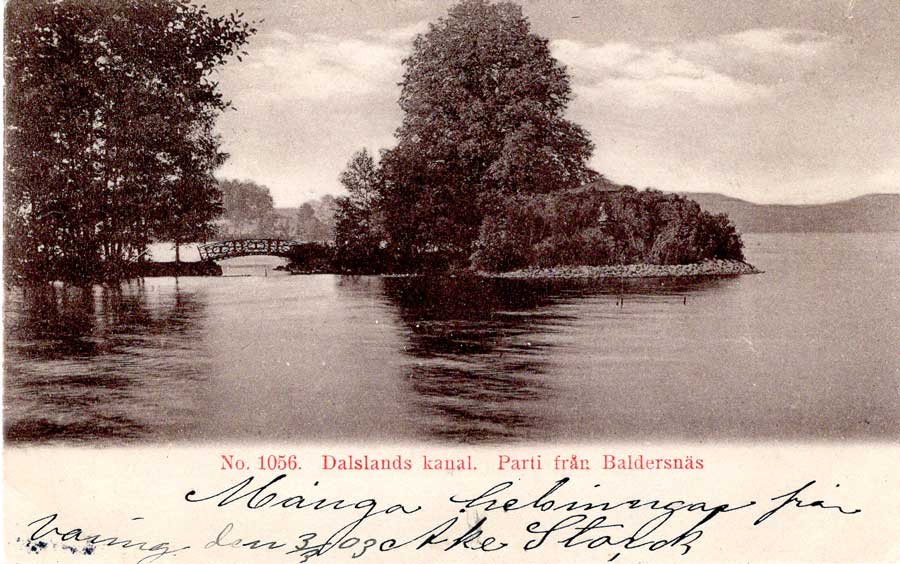 No. 1056. Dalslands kanal. Parti från Baldersnäs
Många helsinngar från
Varing den 03 Åke Storck